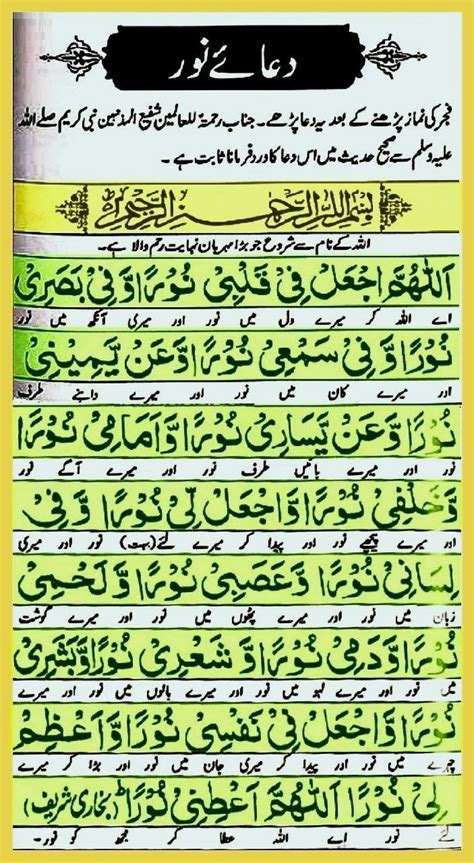 دعائے نور
فجر کی نماز پڑھنے کے بعد یہ دعا پڑھے۔ جناب رحمۃ للعالمین شفیع المذنبین نبی کریم صلے اللہ
علیہ وسلم سے صحیح حدیث میں اس دعا کا ورد فرمانا ثابت ہے۔
بسم الله الرحمن الرحيم
اللہ کے نام سے شروع جو بڑا مہربان نہایت رحم والا ہے۔
اَللّٰهُمَّ اجْعَلْ فِيْ قَلْبِيْ نُوْرًا وَّ فِيْ بَصَرِيْ
اے اللہ کر میرے دل میں نور اور میری آنکھ میں نور
نُوْرًا وَّ فِيْ سَمْعِيْ نُوْرًا وَّ عَنْ يَّمِيْنِيْ
اور میرے کان میں نور اور میرے داہنے طرف
نُوْرًا وَّ عَنْ يَّسَارِيْ نُوْرًا وَّ اَمَامِيْ نُوْرًا
نور اور میرے بائیں طرف نور اور میرے آگے نور
وَّ خَلْفِيْ نُوْرًا وَّ اجْعَلْ لِّيْ نُوْرًا وَّ فِيْ
اور میرے پیچھے نور اور پیدا کر میرے لئے (بہت) نور اور میری
لِسَانِيْ نُوْرًا وَّ عَصَبِيْ نُوْرًا وَّ لَحْمِيْ
زبان میں نور اور میرے پٹھوں میں نور اور میرے گوشت
نُوْرًا وَّ دَمِيْ نُوْرًا وَّ شَعْرِيْ نُوْرًا وَّ بَشَرِيْ
میں نور اور میرے لہو میں نور اور میرے بالوں میں نور اور میرے
نُوْرًا وَّ اجْعَلْ فِيْ نَفْسِيْ نُوْرًا وَّ اَعْظِمْ
چہرے میں نور اور پیدا کر میری جان میں نور اور بڑا کر میرے
لِيْ نُوْرًا اَللّٰهُمَّ اَعْطِنِيْ نُوْرًا ط (بخاری شریف)
لئے نور اے اللہ عطا کر مجھ کو نور۔